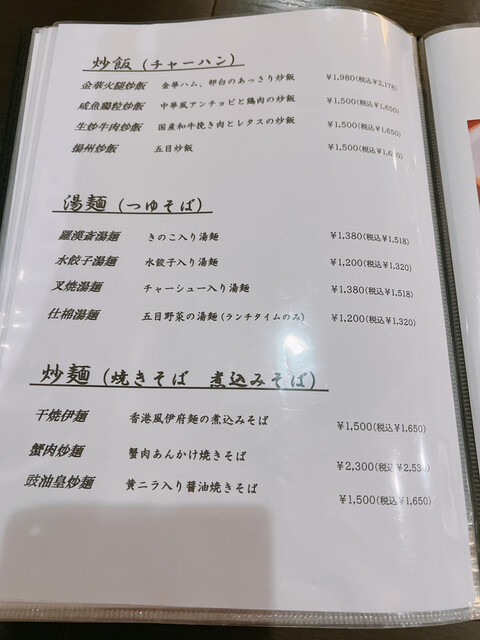 炒飯 (チャーハン)
金華火腿炒飯 金華ハム、卵白のあっさり炒飯 ¥1,980(税込¥2,178)
咸魚鶏粒炒飯 中華風アンチョビと鶏肉の炒飯 ¥1,500(税込¥1,650)
生炒牛肉炒飯 国産和牛挽き肉とレタスの炒飯 ¥1,500(税込¥1,650)
揚州炒飯 五目炒飯 ¥1,500(税込¥1,650)
湯麺 (つゆそば)
羅漢斎湯麺 きのこ入り湯麺 ¥1,380(税込¥1,518)
水餃子湯麺 水餃子入り湯麺 ¥1,200(税込¥1,320)
叉焼湯麺 チャーシュー入り湯麺 ¥1,380(税込¥1,518)
什錦湯麺 五目野菜の湯麺(ランチタイムのみ) ¥1,200(税込¥1,320)
炒麺 (焼きそば 煮込みそば)
干焼伊麺 香港風伊府麺の煮込みそば ¥1,500(税込¥1,650)
蟹肉炒麺 蟹肉あんかけ焼きそば ¥2,300(税込¥2,530)
豉油皇炒麺 黄ニラ入り醤油焼きそば ¥1,500(税込¥1,650)